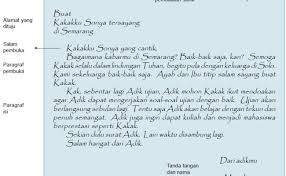 Buat
Kakakku Sonya tersayang
di Semarang
Alamat yang
dituju
Salam
pembuka
Kakakku Sonya yang cantik,
Paragraf
pembuka
Bagaimana kabarmu di Semarang? Baik-baik saja, kan? Semoga
Kakak selalu dalam lindungan Tuhan, begitu pula dengan keluarga di Solo.
Kami sekeluarga baik-baik saja. Ayah dan Ibu titip salam sayang buat
Kakak.
Paragraf
isi
Kak, sebentar lagi Adik ujian, Adik mohon Kakak ikut mendoakan
agar Adik dapat mengerjakan soal-soal ujian dengan baik. Ujian akan
berlangsung sebulan lagi. Tentu saja, dari sekarang Adik belajar dengan
tekun. Adik juga ingin dapat kuliah dan menjadi mahasiswa
berprestasi seperti Kakak.
Sekian dulu surat Adik. Lain waktu disambung lagi.
Salam hangat dari Adik.
Dari adikmu
Tanda tangan
dan nama